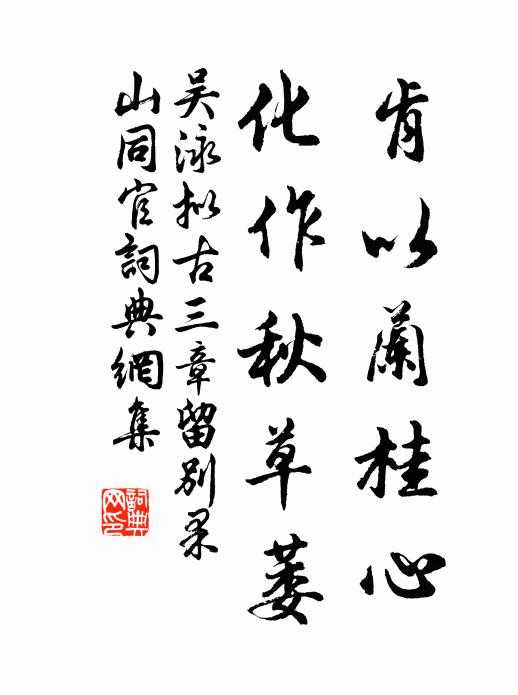 肯以蘭桂心
化作秋草萎
吳泳拟古三章留别果
山同官詞典網集
詞典网印